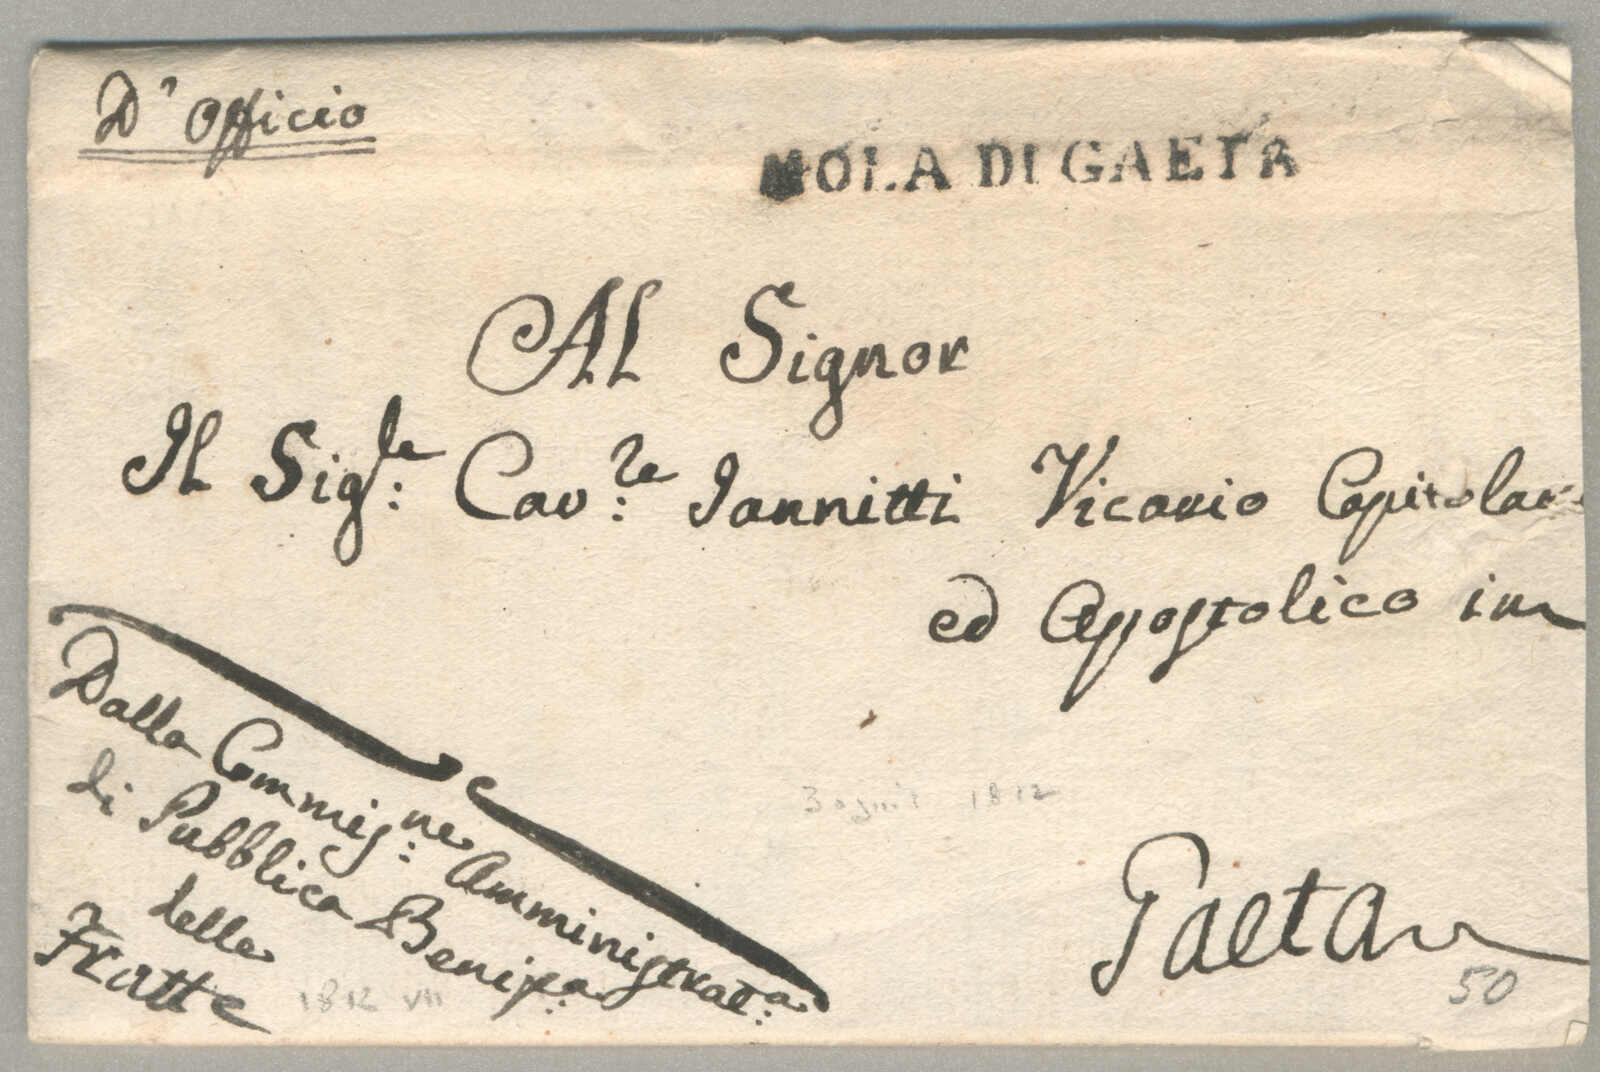 D'Officio
MOLA DI GAETA
Al Signor
Il Sig:le Cav:re Iannitti Vicario Capitolare
ed Apostolico in
Gaeta
Dalla Commis:ne Amministrat:a
di Pubblica Benif:a
delle
Fratte
1812 VII
1812
50